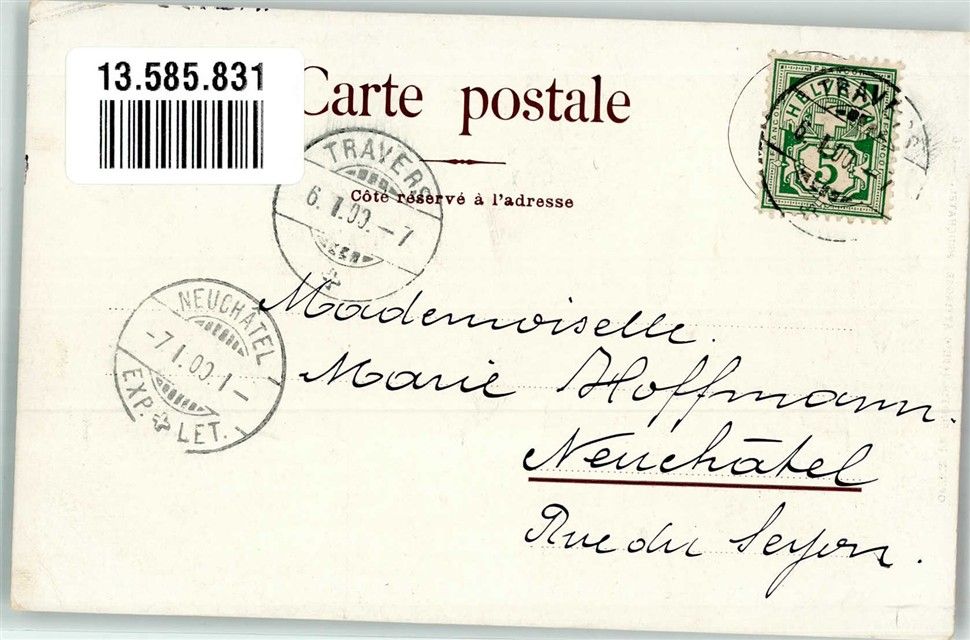 13.585.831
Carte postale
Côté réservé à l'adresse
TRAVERS
6.I.00.-7
HELVETIA
FRANCO
5
NEUCHÂTEL
-7 I.00.1-
EXP. LET.
Mademoiselle.
Marie Hoffmann.
Neuchâtel
Rue du Seyon.